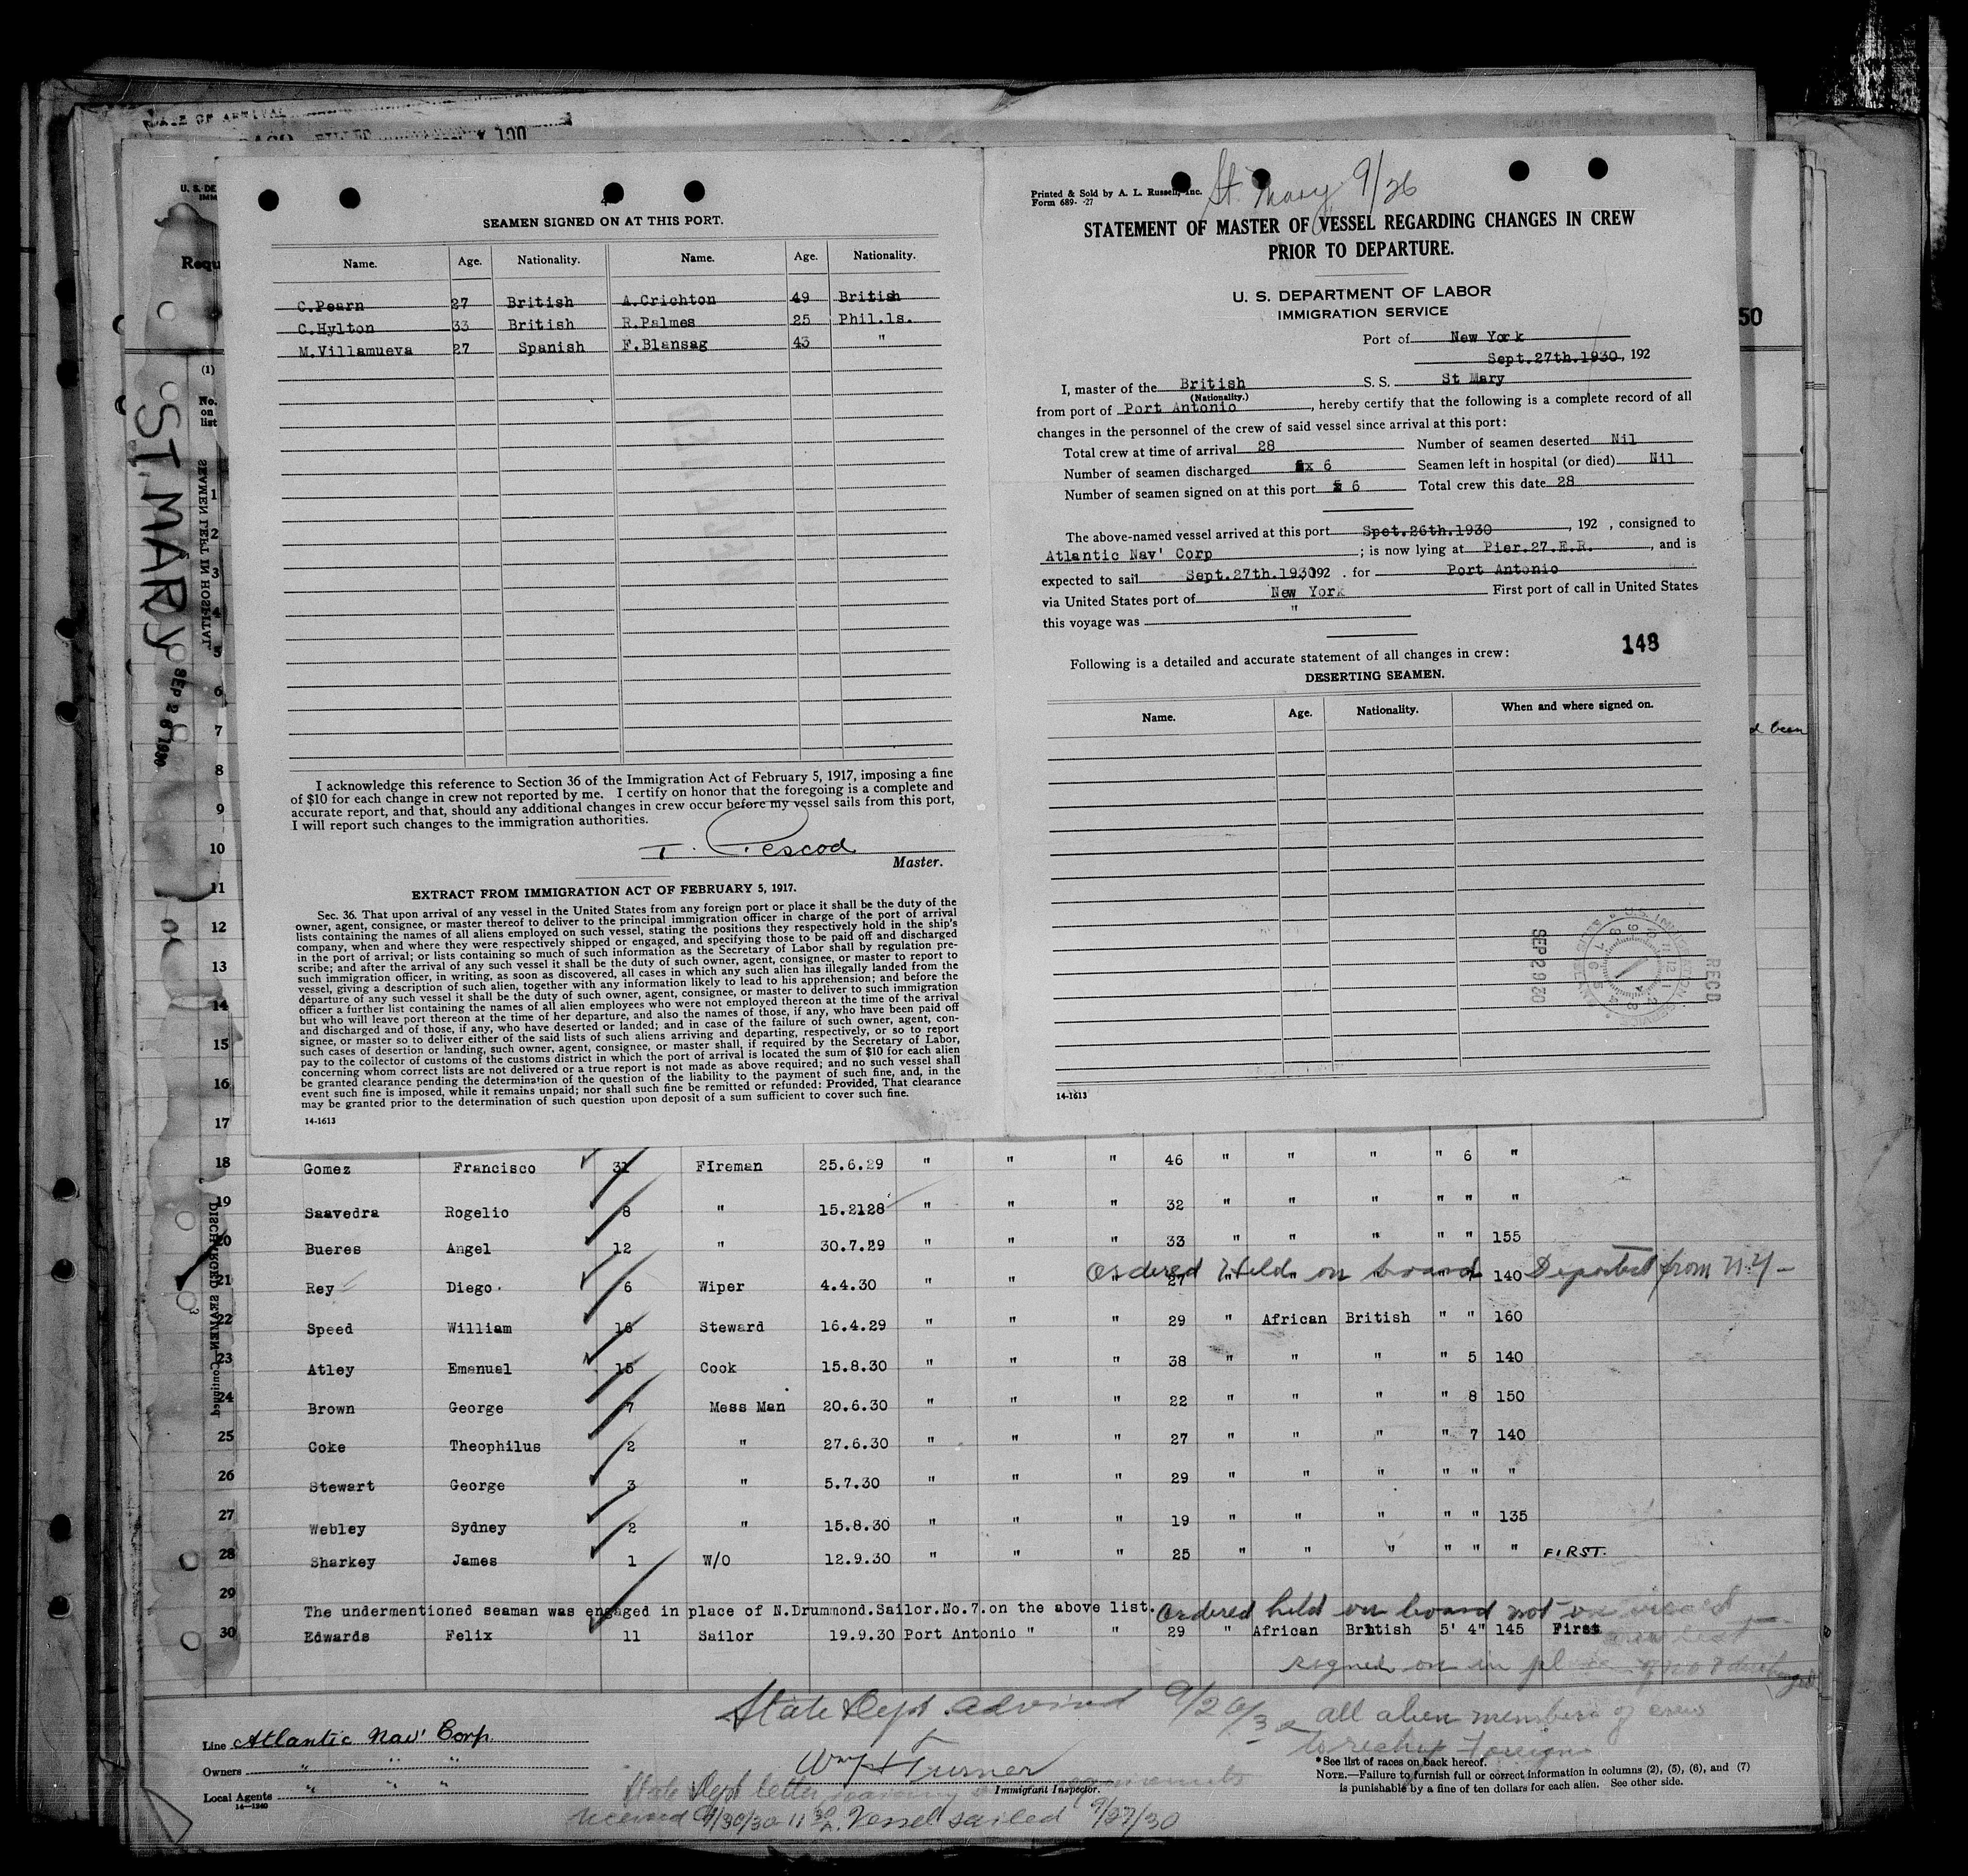 DATE OF ARRIVAL
U. S. DE
IMM
Requ
(1)
No.
on
list
ST. MARY
SEP 26 1930
SEAMEN LEFT IN HOSPITAL
DISCHARGED SEAMEN—Continued
50
d been
4
SEAMEN SIGNED ON AT THIS PORT.
Name. Age. Nationality. Name. Age. Nationality.
C.Pearn 27 British A.Crichton 49 British
C.Hylton 33 British R.Palmes 25 Phil.1s.
M.Villamueva 27 Spanish F.Blansag 43 "
I acknowledge this reference to Section 36 of the Immigration Act of February 5, 1917, imposing a fine
of $10 for each change in crew not reported by me. I certify on honor that the foregoing is a complete and
accurate report, and that, should any additional changes in crew occur before my vessel sails from this port,
I will report such changes to the immigration authorities.
T. Pescod
Master.
EXTRACT FROM IMMIGRATION ACT OF FEBRUARY 5, 1917.
Sec. 36. That upon arrival of any vessel in the United States from any foreign port or place it shall be the duty of the
owner, agent, consignee, or master thereof to deliver to the principal immigration officer in charge of the port of arrival
lists containing the names of all aliens employed on such vessel, stating the positions they respectively hold in the ship's
company, when and where they were respectively shipped or engaged, and specifying those to be paid off and discharged
in the port of arrival; or lists containing so much of such information as the Secretary of Labor shall by regulation pre-
scribe; and after the arrival of any such vessel it shall be the duty of such owner, agent, consignee, or master to report to
such immigration officer, in writing, as soon as discovered, all cases in which any such alien has illegally landed from the
vessel, giving a description of such alien, together with any information likely to lead to his apprehension; and before the
departure of any such vessel it shall be the duty of such owner, agent, consignee, or master to deliver to such immigration
officer a further list containing the names of all alien employees who were not employed thereon at the time of the arrival
but who will leave port thereon at the time of her departure, and also the names of those, if any, who have been paid off
and discharged and of those, if any, who have deserted or landed; and in case of the failure of such owner, agent, con-
signee, or master so to deliver either of the said lists of such aliens arriving and departing, respectively, or so to report
such cases of desertion or landing, such owner, agent, consignee, or master shall, if required by the Secretary of Labor,
pay to the collector of customs of the customs district in which the port of arrival is located the sum of $10 for each alien
concerning whom correct lists are not delivered or a true report is not made as above required; and no such vessel shall
be granted clearance pending the determination of the question of the liability to the payment of such fine, and, in the
event such fine is imposed, while it remains unpaid; nor shall such fine be remitted or refunded: Provided, That clearance
may be granted prior to the determination of such question upon deposit of a sum sufficient to cover such fine.
14-1613
St. Mary 9/26
Printed & Sold by A. L. Russell, Inc.
Form 689- -27
STATEMENT OF MASTER OF VESSEL REGARDING CHANGES IN CREW
PRIOR TO DEPARTURE.
U. S. DEPARTMENT OF LABOR
IMMIGRATION SERVICE
Port of New York
Sept.27th.1930, 192
I, master of the British S. S. St Mary
(Nationality.)
from port of Port Antonio, hereby certify that the following is a complete record of all
changes in the personnel of the crew of said vessel since arrival at this port:
Total crew at time of arrival 28 Number of seamen deserted Nil
Number of seamen discharged 6 Seamen left in hospital (or died) Nil
Number of seamen signed on at this port 6 Total crew this date 28
The above-named vessel arrived at this port Spet.26th.1930, 192 , consigned to
Atlantic Nav' Corp ; is now lying at Pier.27.E.R. , and is
expected to sail Sept.27th.1930 192 . for Port Antonio
via United States port of New York First port of call in United States
this voyage was "
148
Following is a detailed and accurate statement of all changes in crew:
DESERTING SEAMEN.
Name. Age. Nationality. When and where signed on.
SEP 29 30
RECD
14-1613
1
2
3
4
5
6
7
8
9
10
11
12
13
14
15
16
17
18 Gomez Francisco 31 FIreman 25.6.29 " " " 46 " " " " 6 "
19 Saavedra Rogelio 8 " 15.2128 " " " 32 " " " " " "
20 Bueres Angel 12 " 30.7.29 " " " 33 " " " " " 155
Ordered Held on board Deported from N.Y-
21 Rey Diego. 6 Wiper 4.4.30 " " " 27 " " " " 7 140
22 Speed William 16 Steward 16.4.29 " " " 29 " African British " " 160
23 Atley Emanuel 15 Cook 15.8.30 " " " 38 " " " " 5 140
24 Brown George 7 Mess Man 20.6.30 " " " 22 " " " " 8 150
25 Coke Theophilus 2 " 27.6.30 " " " 27 " " " " 7 140
26 Stewart George 3 " 5.7.30 " " " 29 " " " " " "
27 Webley Sydney 2 " 15.8.30 " " " 19 " " " " " 135
28 Sharkey James 1 W/O 12.9.30 " " " 25 " " " " " " FIRST.
29 The undermentioned seaman was engaged in place of N.Drummond.Sailor.No.7.on the above list. Ordered held on board not on visaed
30 Edwards Felix 11 Sailor 19.9.30 Port Antonio " " 29 " African British 5' 4" 145 First
signed on in place of No 7
State Dept. advised 9/26/30 all alien members of crew
Line Atlantic Nav' Corp.
Owners " " "
Local Agents " " "
14—1240
Wm H Turner
Immigrant Inspector.
State Dept letter
received 9/30/30 11 30 A. Vessel sailed 9/27/30
*See list of races on back hereof.
NOTE.—Failure to furnish full or correct information in columns (2), (5), (6), and (7)
is punishable by a fine of ten dollars for each alien. See other side.